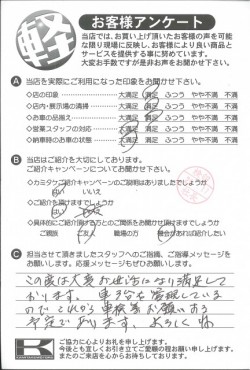 軽
お客様アンケート
当店では、お買い上げ頂いたお客様の声を可能
な限り現場に反映し、お客様により良い商品と
サービスを提供する事に努めています。
大変お手数ですが是非お声をお聞かせ下さい。
A 当店を実際にご利用になった印象をお聞かせ下さい。
◇店の印象 大満足 満足 ふつう やや不満 不満
◇店内・展示場の清掃 大満足 満足 ふつう やや不満 不満
◇お車の品揃え 大満足 満足 ふつう やや不満 不満
◇営業スタッフの対応 大満足 満足 ふつう やや不満 不満
◇納車時のお車の状態 大満足 満足 ふつう やや不満 不満
B 当店はご紹介を大切にしております。
ご紹介キャンペーンについてお聞かせ下さい。
◇カミタケご紹介キャンペーンのご説明はありましたでしょうか
はい いいえ
◇ご紹介を頂けますでしょうか
◇具体的にご紹介頂ける方とのご関係をお聞かせ頂けますでしょうか
ご親族 ご友人 職場の方 機会があれば紹介したい
C 担当させて頂きましたスタッフへのご指導、ご指導メッセージを
お願いします。応援メッセージもぜひお願いします。
この度は大変お世話になり満足して
おります。
ので これから車検等お願いする
予定であります。よろしく
ご協力に心よりお礼を申し上げます。
今後とも宜しくお引き立てご愛顧の程お願い申し上げます。
またのご来店を心からお待ちしております。